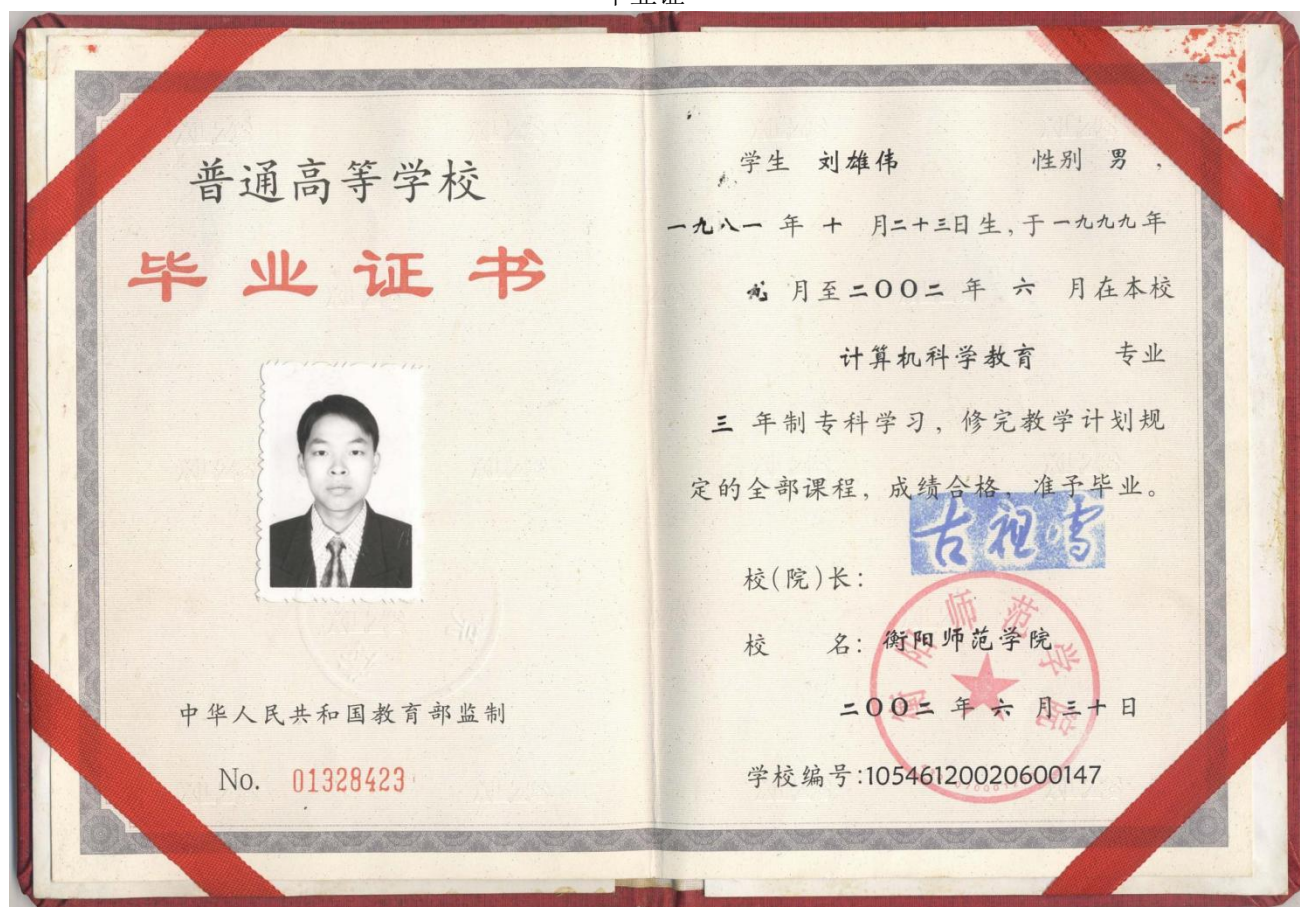 毕业证
普通高等学校
毕业证书
中华人民共和国教育部监制
No. 01328423
学生 刘雄伟 性别 男,
一九八一 年 十 月二十三日生,于一九九九年
九 月至二〇〇二 年 六 月在本校
计算机科学教育 专业
三 年制专科学习,修完教学计划规
定的全部课程,成绩合格,准予毕业。
古祖雪
校(院)长:
校 名: 衡阳师范学院
衡阳师范学院
二〇〇二 年 六 月三十日
学校编号:10546120020600147